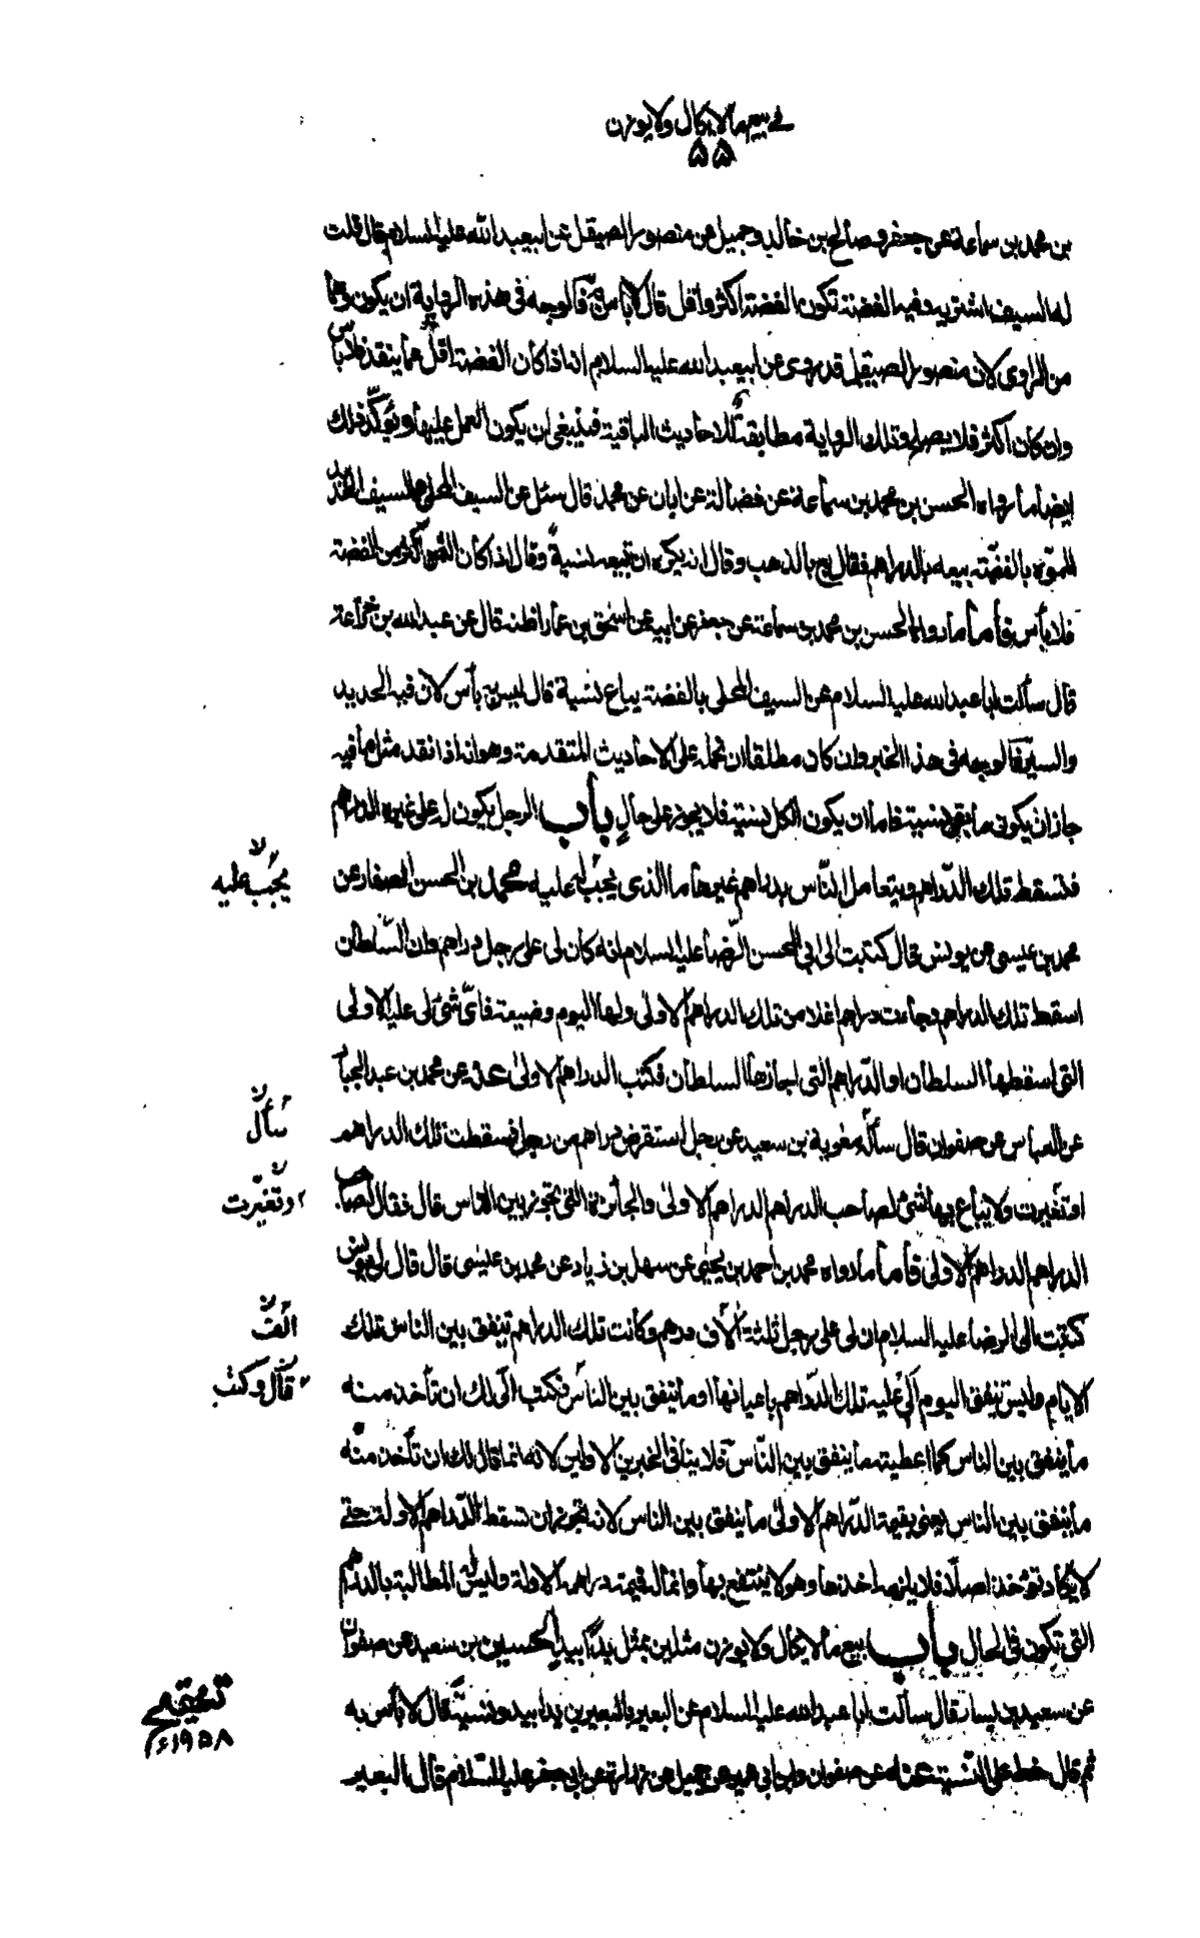 في بيع ما لا يكال ولا يوزن
۵۵
بن محمد بن سماعة عن جعفر وصالح بن خالد وجميل عن منصور الصيقل عن ابيعبد الله عليه السلام قال قلت
له السيف اشتريه وفيه الفضة تكون الفضة اكثر واقل قال لا بأس به فالوجه في هذه الرواية ان يكون وهما
من الراوي لان منصور الصيقل قد روى عن ابيعبد الله عليه السلام انه اذا كان الفضة اقل مما ينقد فلا باس
وان كان اكثر فلا يصلح وتلك الرواية مطابقة للاحاديث الباقية فينبغي ان يكون العمل عليها ويؤكد ذلك
ايضا ما رواه الحسن بن محمد بن سماعة عن فضالة عن ابان عن محمد قال سئل عن السيف المحلى والسيف الحديد
المموّه بالفضّة يبيعه بالدراهم فقال بع بالذهب وقال انه يكره ان تبيعه نسية وقال اذا كان الثمن اكثر من الفضة
فلا بأس فأما ما رواه الحسن بن محمد بن سماعة عن جعفر عن ابيه عن اسحق بن عمار اظنه قال عن عبد الله بن خزاعة
قال سألت ابا عبد الله عليه السلام عن السيف المحلى بالفضة يباع نسية قال ليس به بأس لان فيه الحديد
والسير فالوجه في هذا الخبر وان كان مطلقا ان نحمله على الاحاديث المتقدمة وهو انه اذا نقد مثل ما فيه
جاز ان يكون ما بقى نسية فاما ان يكون الكل نسية فلا يجوز على حال باب الرجل يكون له على غيره الدراهم
فتسقط تلك الدّراهم ويتعامل النّاس بدراهم غيرها ما الذى يجب له عليه محمد بن الحسن الصفار عن
يجب عليه
محمد بن عيسى عن يونس قال كتبت الى ابي الحسن الرّضا عليه السلام انه كان لى على رجل دراهم وان السّلطان
اسقط تلك الدراهم وجاءت دراهم اغلا من تلك الدراهم الاولى ولها اليوم وضيعة فايّ شئ لى عليه الاولى
التى اسقطها السلطان او الدّراهم التى اجازها السلطان فكتب الدراهم الاولى عنه عن محمد بن عبد الجبار
عن العباس عن صفوان قال سأله معوية بن سعيد عن رجل استقرض دراهم من رجل فسقطت تلك الدراهم
سأل
او تغيرت ولا يباع بها شئ لصاحب الدراهم الدراهم الاولى والجائزة التى تجوز بين الناس قال فقال لصاحب
وتغيّرت
الدراهم الدراهم الاولى فأما ما رواه محمد بن احمد بن يحيى عن سهل بن زياد عن محمد بن عيسى قال قال لى يونس
كتبت الى الرضا عليه السلام ان لى على رجل ثلثة الاف درهم وكانت تلك الدراهم تنفق بين الناس تلك
الف
الايام وليس تنفق اليوم الي عليه تلك الدّراهم باعيانها او ما ينفق بين الناس فكتب الىّ لك ان تأخذ منه
قال وكتب
ما ينفق بين الناس كما اعطيته ما ينفق بين النّاس فلا ينافى الخبرين الاولين لانه انما قال لك ان تأخذ منه
ما ينفق بين الناس يعنى بقيمة الدّراهم الاولى ما ينفق بين الناس لانه يجوز ان تسقط الدّراهم الاولة حتى
لا يكاد تؤخذ اصلا فلا يلزمه اخذها وهو لا ينتفع بها وانما له قيمة دراهمه الاولة وليس له المطالبة بالدراهم
التى تكون فى الحال باب بيع ما لا يكال ولا يوزن مثلين بمثل يدًا بيد الحسين بن سعيد عن صفوان
عن سعيد بن يسار قال سألت ابا عبد الله عليه السلام عن البعير بالبعيرين يدا بيد ونسية قال لا بأس به
ثم قال خط على النسية عنه عن صفوان وابن ابي عمير عن جميل عن زرارة عن ابي جعفر عليه السّلام قال البعير
۱۹۵۸ء